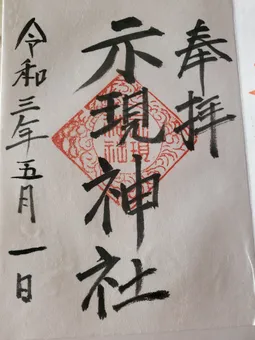 奉拝
示現神社
令和三年五月一日